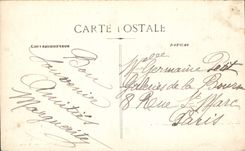 CARTE POSTALE
CORRESPONDANCE
ADRESSE
Bon
Souvenir
Amitiés
Marguerite
Melle Germaine Petit
Galeries de la Bourse
8 Rue St Marc
Paris